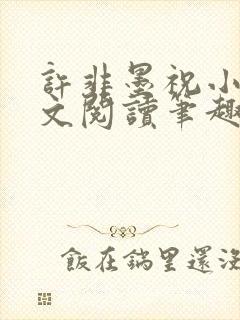 許非墨祝小
文閱讀筆趣
飯在鍋里還沒